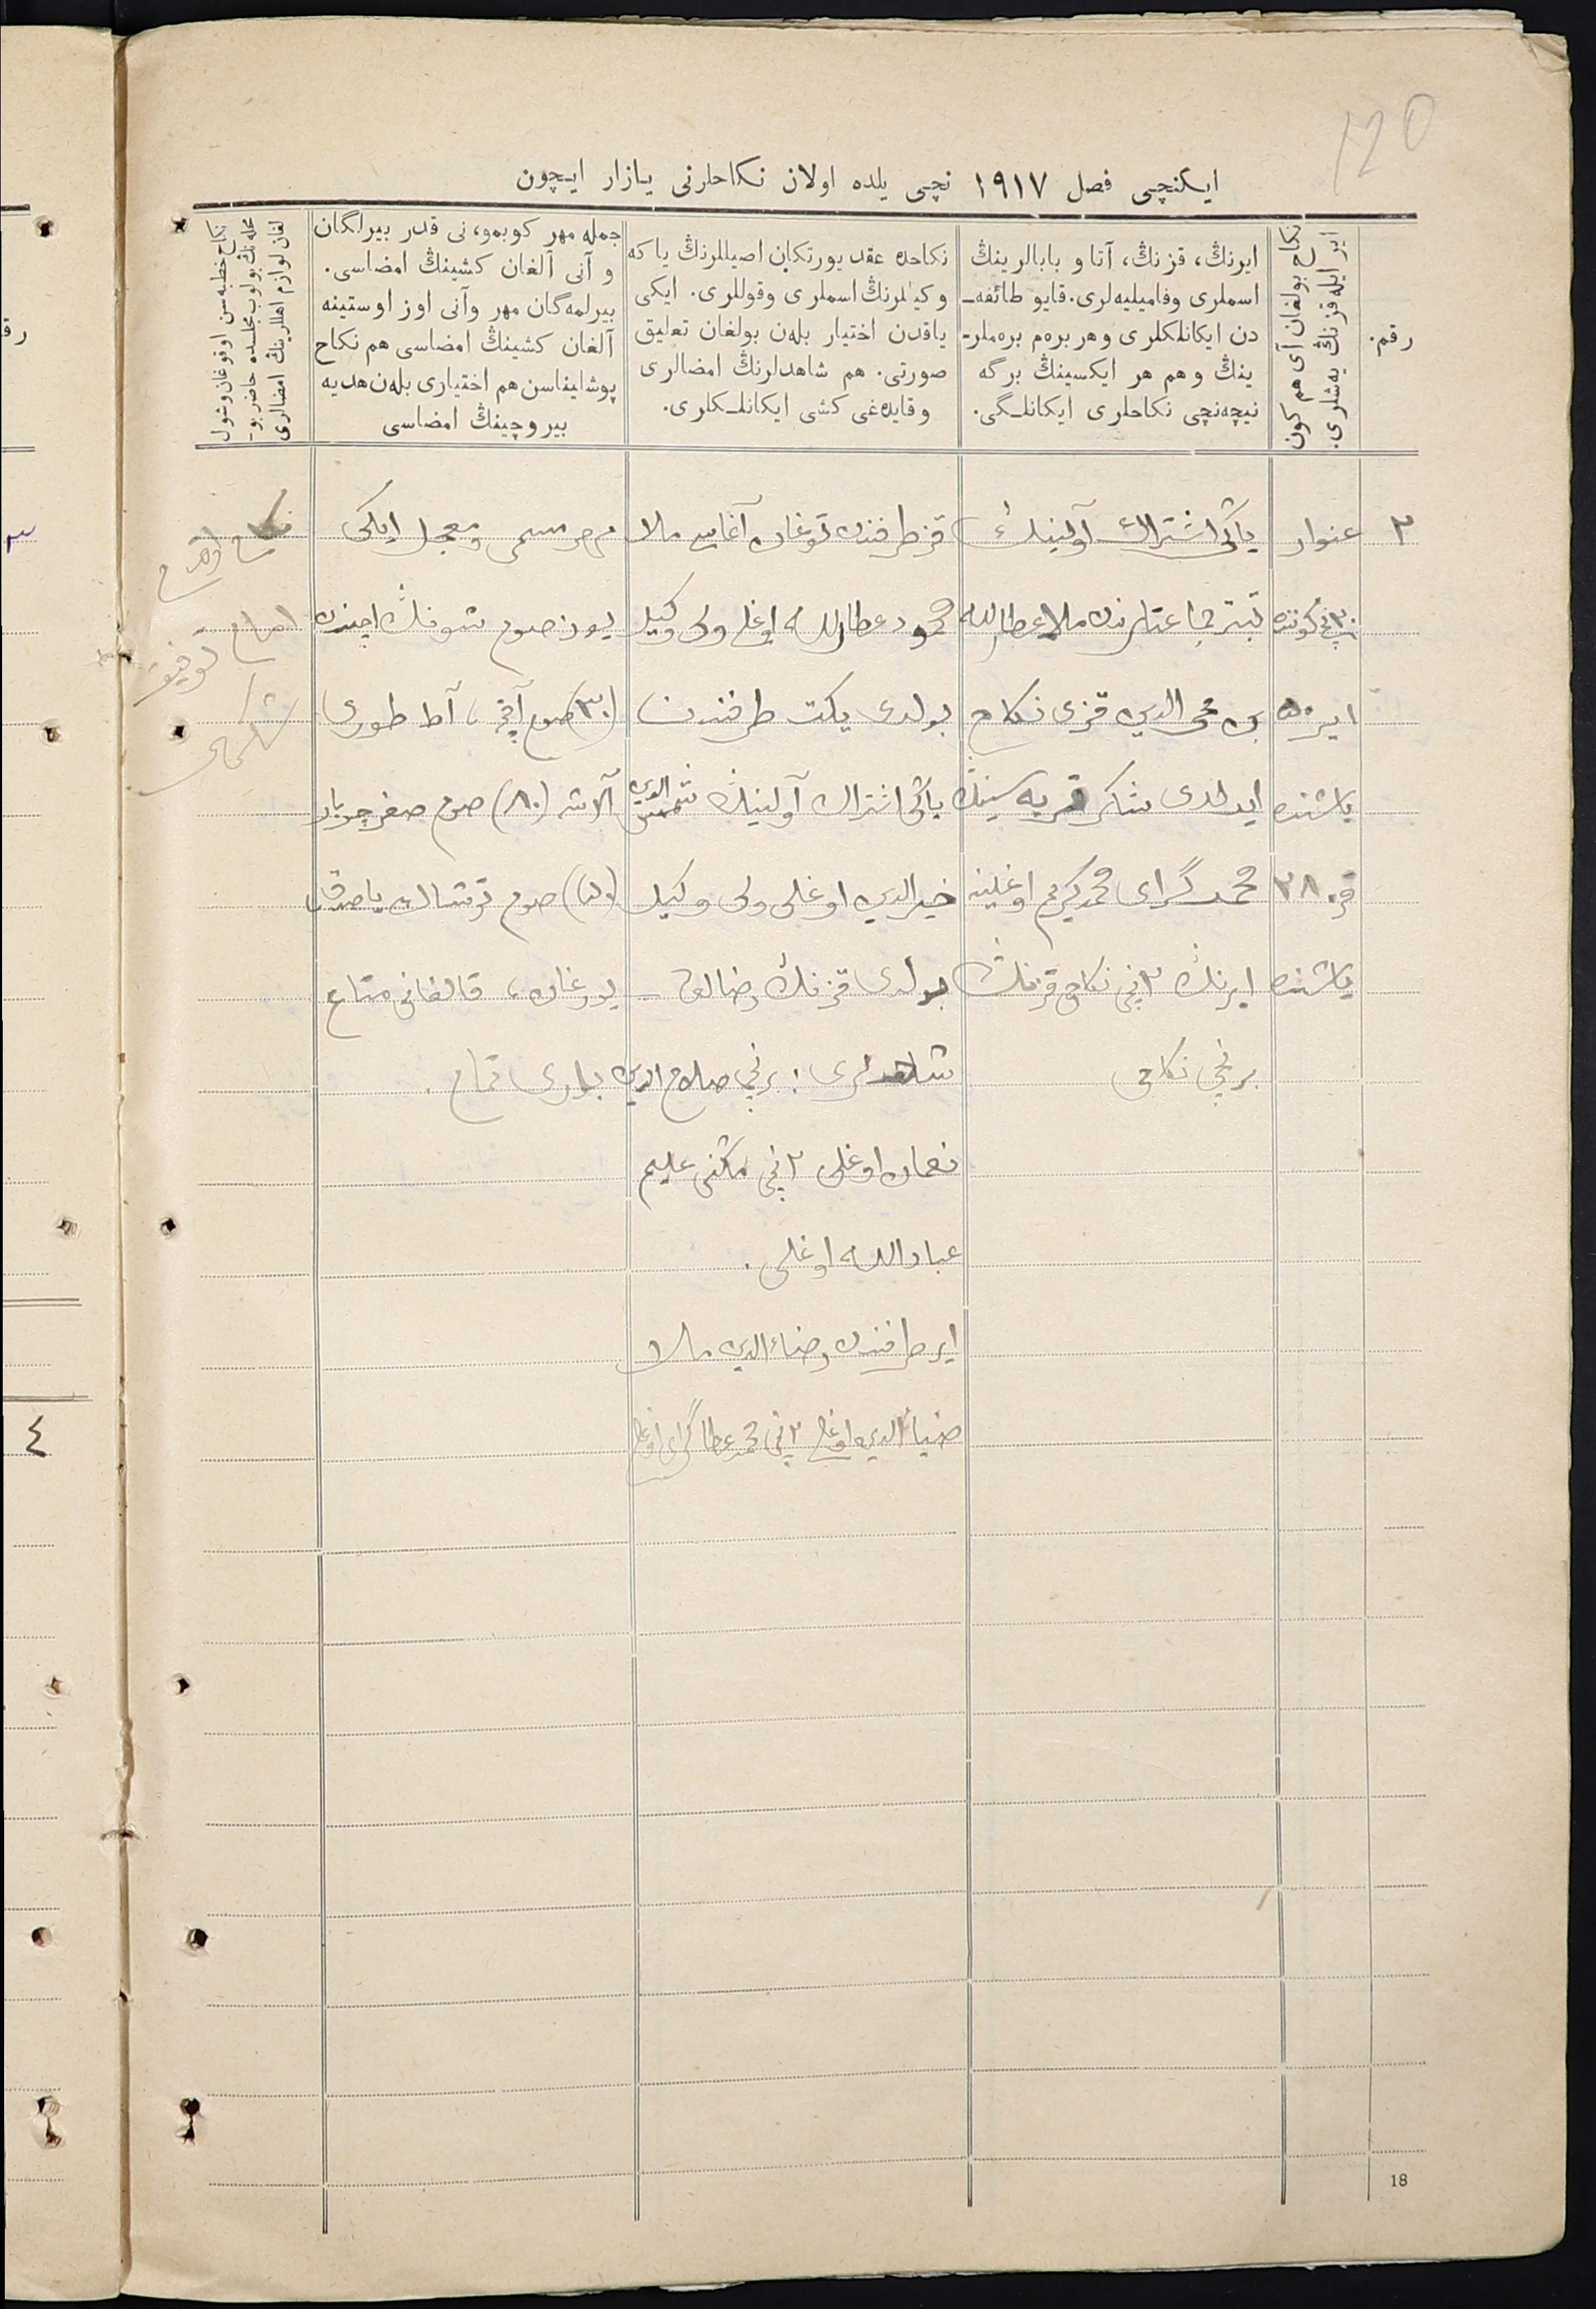 120
ایکنچی فصل ١٩١٧ نچی یلده اولان نکاحلرنی یازار ایچون
رقم.
نکاح بولغان آی هم کون
ایر ایله قزنڭ یه‌شلری.
ایرنڭ، قزنڭ، آتا و بابالرینڭ
اسملری وفامیلیه‌لری. قایو طائفه‌ـ
دن ایکانلکلری و هر بره‌م بره‌ملرـ
ینڭ و هم هر ایکسینڭ برگه
نیچه‌نچی نکاحلری ایکانلـگی.
نکاحده عقد یورتکان اصیللرنڭ یا که
وکیللرنڭ اسملری وقوللری. ایکی
یاقدن اختیار بله‌ن بولغان تعلیق
صورتی. هم شاهدلرنڭ امضالری
وقایده‌غی کشی ایکانلـکلری.
جمله مهر کوبمو، نی قدر بیرلگان
و آنی آلغان کشینڭ امضاسی.
بیرلمه‌گان مهر وآنی اوز اوستینه
آلغان کشینڭ امضاسی هم نکاح
پوشلیناسن هم اختیاری بله‌ن هدیه
بیروچینڭ امضاسی
نکاح خطبه‌سن اوقوغان وشول
محله‌نڭ بولوب مجلسده حاضر بوـ
لغان لوازم اهللرینڭ امضالری
٢
عنوار
٣٠نچی کوننده
ایر ٥٠
یاشنده
قز ٢٨
یاشنده
یاڭی اشتراك آولینڭ
تبتر جماعتلرندن ملا عطاءالله
بن محی الدین قزی نکاح
ایدلدی شکر قریه سینڭ
محمدگرای محمدکریم اوغلینه
ایرنڭ ٢نچی نکاحی قزنڭ
برنچی نکاحی
قز طرفندن توغان آغاسی ملا
محمود عطاءالله اوغلی ولی وکیل
بولدی یکت طرفندن
یاڭی اشتراك آولینڭ شمس الدین
خیرالدین اوغلی ولی وکیل
بولدی قزنڭ رضالقی
شاهدلری: برنچی صلاح الدین
نعمان اوغلی ٢نچی
عبادالله اوغلی.
ایر طرفندن رضاءالدین ملا
ضیاءالدین اوغلی ٢نچی محمد عطاگرای اوغلی
مهر مسمی معجل ایکی
یوز صوم شونڭ اچنده
(٣٠) صوم آقچه، آط طوری
آلاشه (٨٠) صوم
(٥٠) صوم یاصدق
یورغان، قالغانی متاع
باری تمام.
نکاح
امام توفیق
٣
٤
18